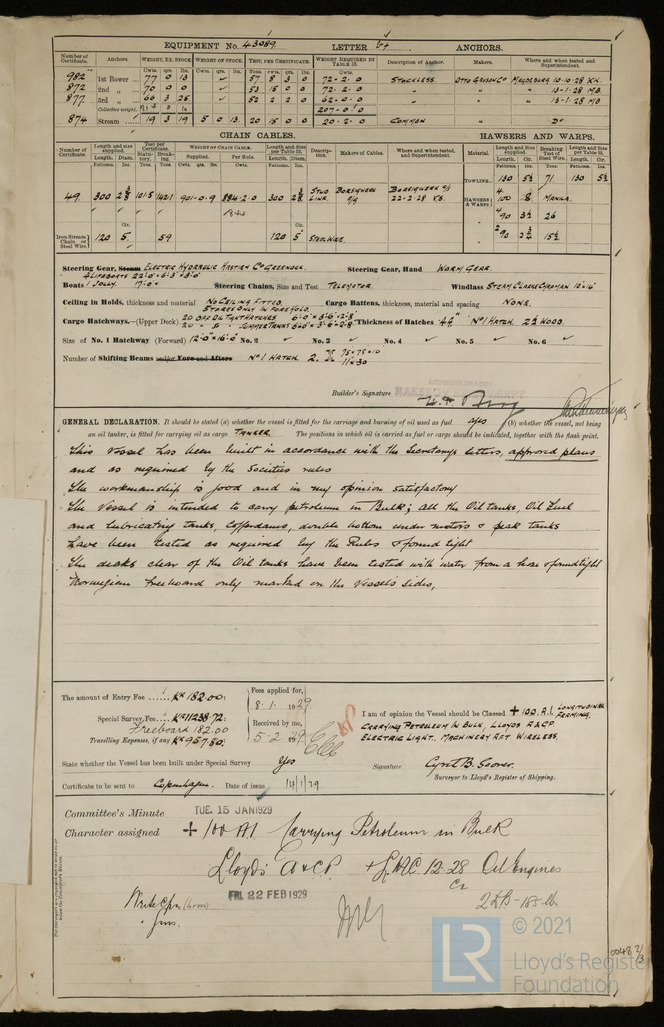 EQUIPMENT No. 43089. LETTER b† ANCHORS.
Number of Certificate. Anchors. WEIGHT, EX. STOCK. WEIGHT OF STOCK. TEST, PER CERTIFICATE. WEIGHT REQUIRED BY TABLE 53. Description of Anchor. Makers. Where and when tested and Superintendent.
Cwts. qrs. lbs. Cwts. qrs. lbs. Tons. cwts. qrs. lbs. Cwts.
982 1st Bower 77 0 13 ✓ 57 8 3 0 72.2.0 STOCKLESS OTTO GRUSON Co MAGDEBURG 10-10-28
872 2nd „ 70 0 0 ✓ 53 15 0 0 72.2.0 „ „ „ 13-1-28 MB
877 3rd „ 60 3 25 ✓ 52 2 2 0 62.0.0 „ „ „ 13-1-28 MB
Collective weight. 207.0.0
874 Stream 19 3 19 5 0 13 20 15 0 0 20.2.0 COMMON „ Do
CHAIN CABLES. HAWSERS AND WARPS.
Number of Certificate. Length and size supplied. Test per Certificate. WEIGHT OF CHAIN CABLE. Length and size per Table 53. Description. Makers of Cables. Where and when tested, and Superintendent. Material. Length and size supplied. Breaking Test of Steel Wire. Length and size per Table 53.
Length. Diam. Statutory. Breaking. Supplied. Per Rule. Length. Diam. Length. Cir. Length. Cir.
TOWLINE 130 5½ 71. 130 5½
49. 300 2⅜ 101.5 142.1 901-0-9 884-2-0 300 2⅜ STUD LINK. BORSIGWERK A/G BORSIGWERK O/S 22-2-28
HAWSERS & WARPS 4 100 8 MANILA.
4 90 3½ 26
Iron Stream Chain or Steel Wire 120 5 59 120 5 STEELWIRE. 2 90 2¾ 15½
Steering Gear, Steam ELECTRIC HYDRAULIC HASTIAN Co GREENOCK. Steering Gear, Hand WORM GEAR.
Boats 4 LIFEBOATS 22'0" × 6'3" × 3'0" 1 JOLLY. 17'0" Steering Chains, Size and Test TELEMOTOR. Windlass STEAM CLARKE CHAPMAN 10"×14"
Ceiling in Holds, thickness and material NO CEILING FITTED. STORES ONLY IN FORE HOLD. Cargo Battens, thickness, material and spacing NONE.
Cargo Hatchways.—(Upper Deck) 20 OFF OIL TANK HATCHES 6'.0" × 3'.6" × 2'.8" Thickness of Hatches .44" No 1 HATCH 2½ WOOD.
20 „ „ SUMMER TANKS 3'.6" × 2'.8"
Size of No. 1 Hatchway (Forward) 12'.0" × 16'.0" No. 2 ✓ No. 3 ✓ No. 4 ✓ No. 5 ✓ No. 6 ✓
Number of Shifting Beams and/or Fore and Afters No 1 HATCH 2.
Builder's Signature
GENERAL DECLARATION. It should be stated (a) whether the vessel is fitted for the carriage and burning of oil used as fuel yes (b) whether the vessel, not being
an oil tanker, is fitted for carrying oil as cargo TANKER. The positions in which oil is carried as fuel or cargo should be indicated, together with the flash point.
This Vessel has been built in accordance with the Secretarys letters, approved plans
and as required by the Societies rules
The workmanship is good and in my opinion satisfactory
The Vessel is intended to carry petroleum in Bulk; all the Oil tanks, Oil Fuel
and lubricating tanks, Cofferdams, double bottom under motors & peak tanks
have been tested as required by the Rules & found tight
The decks clear of the Oil tanks have been tested with water from a hose & found tight
Norwegian freeboard only marked on the Vessels sides,
The amount of Entry Fee Kr 182.00: Fees applied for, 8.1.1929
Special Survey Fee Kr 11238.72: Received by me,
Freeboard 182.00 5-2 1929
Travelling Expenses, if any Kr 957.50:
I am of opinion the Vessel should be Classed + 100.A.1. LONGITUDINAL FRAMING.
CARRYING PETROLEUM IN BULK, LLOYDS A&CP
ELECTRIC LIGHT, MACHINERY AFT WIRELESS.
State whether the Vessel has been built under Special Survey Yes Signature
Surveyor to Lloyd's Register of Shipping.
Certificate to be sent to Copenhagen. Date of issue 14/1/29
Committee's Minute TUE. 15 JAN 1929
Character assigned + 100 A1 Carrying Petroleum in Bulk
Lloyd's A&CP. + LMC. 12.28 Oil Engines
FRI. 22 FEB 1929
2 DB - 185 lb
© 2021
LR Lloyd's Register
Foundation
0048 2/3